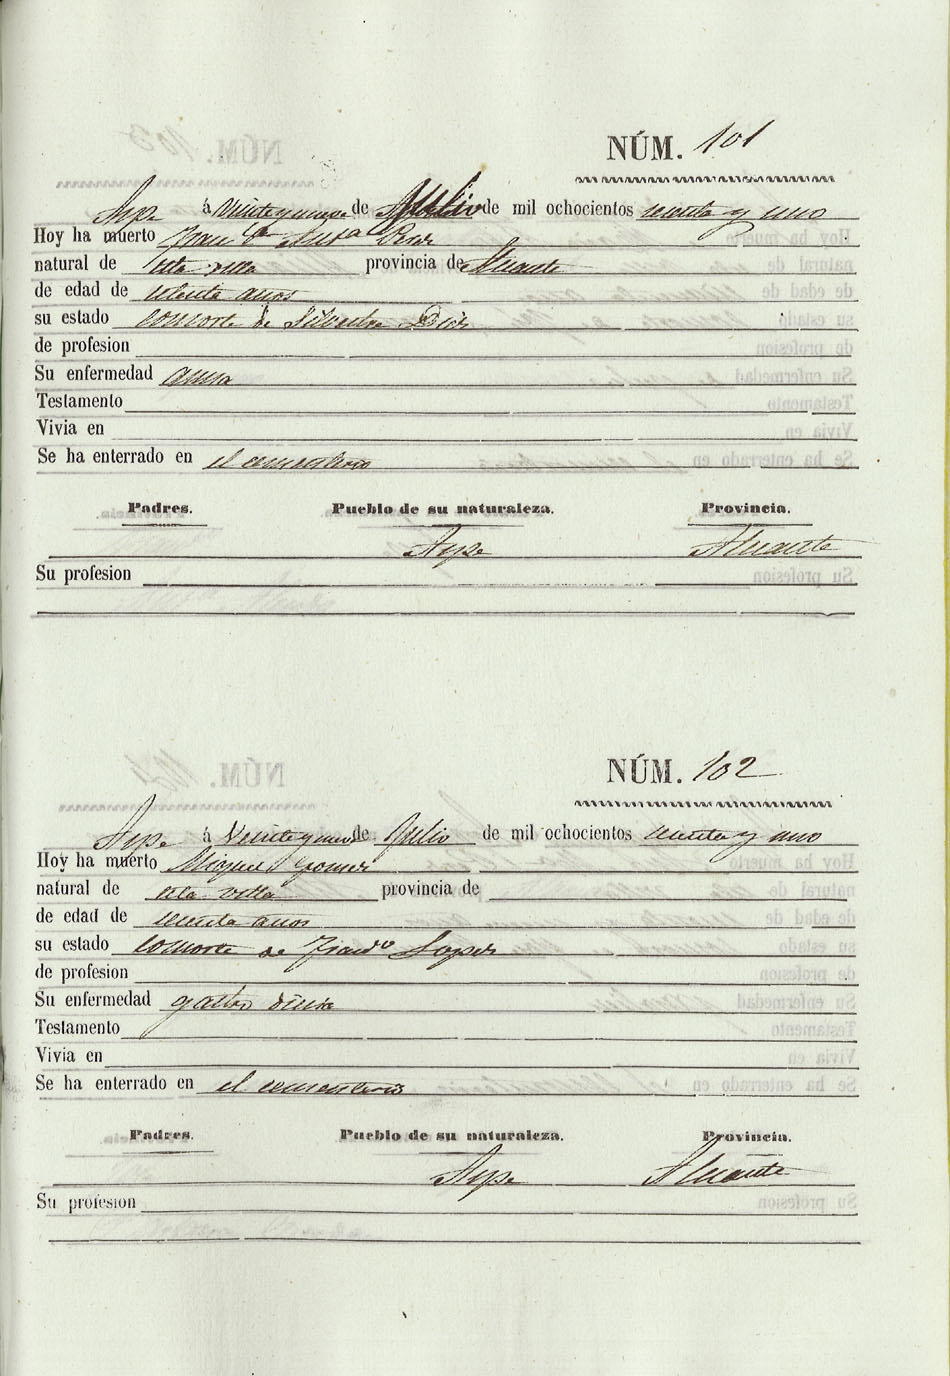 NÚM. 101
Aspe á veinte y nueve de Julio de mil ochocientos sesenta y uno
Hoy ha muerto Fran.ca
natural de esta villa provincia de Alicante
de edad de años
su estado consorte de Silvestre
de profesion
Su enfermedad asma
Testamento
Vivia en
Se ha enterrado en el cementerio
Padres. Pueblo de su naturaleza. Provincia.
Aspe Alicante
Su profesion
NÚM. 102
Aspe á Veinte y nueve de Julio de mil ochocientos sesenta y uno
Hoy ha muerto Miguel Gomez
natural de esta villa provincia de
de edad de sesenta años
su estado consorte de Lopez
de profesion
Su enfermedad gastro
Testamento
Vivia en
Se ha enterrado en el cementerio
Padres. Pueblo de su naturaleza. Provincia.
Aspe Alicante
Su profesion